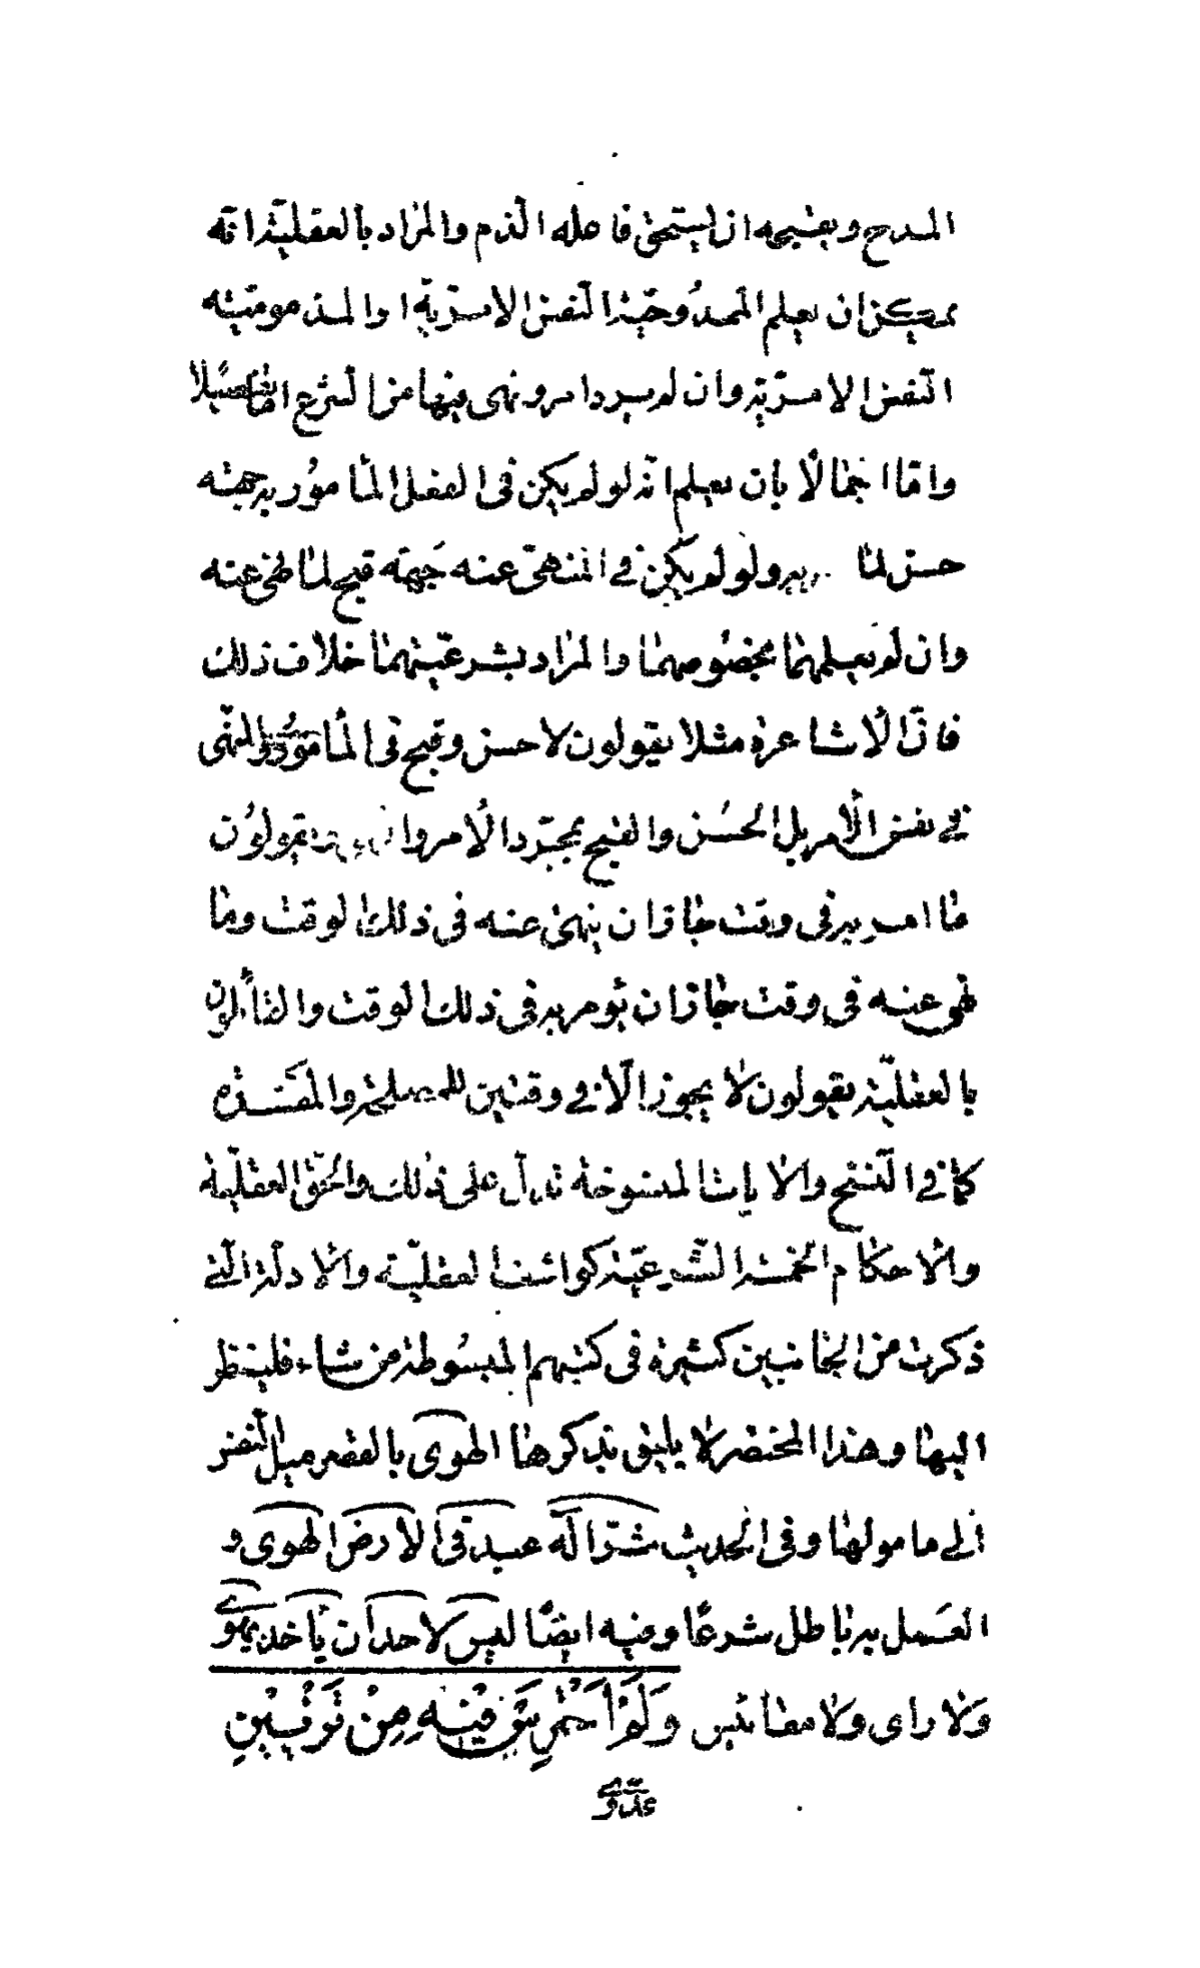 المدح وبقبيحه ان يستحق فاعله الذم والمراد بالعقلية انه
يمكن ان يعلم الممدوحية النفس الامرية او المذمومية
النفس الامرية وان لم يرد امر ونهى فيها من الشرع اما تفصيلا
واما اجمالا بان يعلم انه لو لم يكن فى الفعل المامور به جهة
حسن لما به ولو لم يكن في المنهى عنه جهة قبح لما نهى عنه
وان لم يعلمهما بخصوصهما والمراد بشرعيتهما خلاف ذلك
فان الاشاعرة مثلا يقولون لا حسن وقبح فى المامور والمنهى
في نفس الامر بل الحسن والقبح بمجرد الامر و يقولون
ما امر به فى وقت جاز ان ينهى عنه فى ذلك الوقت وما
نهى عنه فى وقت جاز ان يؤمر به فى ذلك الوقت والقائلون
بالعقلية يقولون لا يجوز الا في وقتين للمصلحة والمفسدة
كما في النسخ والايات المنسوخة تدل على ذلك والحق العقلية
والاحكام الخمسة الشرعية كواشف العقلية والادلة التي
ذكرت من الجانبين كثيرة فى كتبهم المبسوطة من شاء فلينظر
اليها وهذا المختصر لا يليق بذكرها الهوى بالقصر ميل النفس
الى مامولها وفى الحديث شر اله عبد فى الارض الهوى و
العمل به باطل شرعا وفيه ايضا ليس لاحد ان ياخذ بهوى
ولا راى ولا مقائيس وَلَمْ اَحْمَرِ يَتَّق فيْهِ مِنْ تَوْبيْنِ